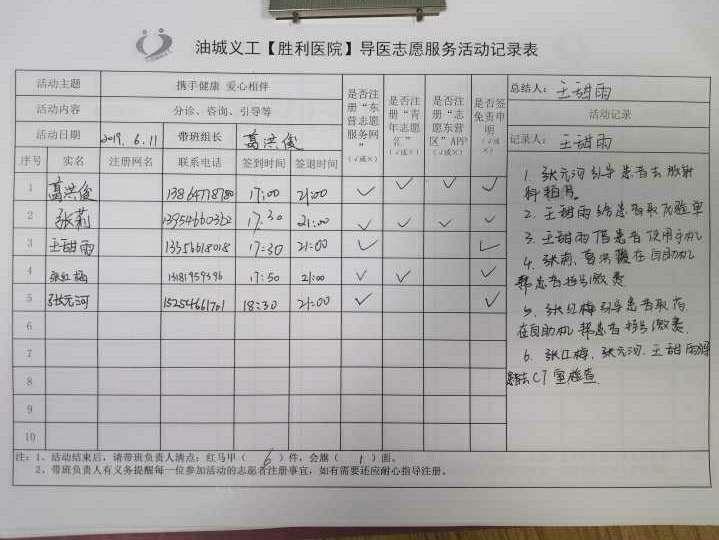 油城义工【胜利医院】导医志愿服务活动记录表
活动主题 携手健康 爱心相伴
活动内容 分诊、咨询、引导等
活动日期 2019.6.11 带班组长 葛洪俊
是否注册“东营志愿服务网”(√或×)
是否注册“青年志愿汇”(√或×)
是否注册“志愿东营区”APP(√或×)
是否签免责申明(√或×)
总结人: 王甜雨
活动记录
记录人: 王甜雨
序号 实名 注册网名 联系电话 签到时间 签退时间
1 葛洪俊 13864778780 17:00 21:00 √ √ √ √
2 张莉 17:30 21:00 √ √ √ √
3 王甜雨 17:30 21:00 √ √
4 张红梅 13181959396 17:50 21:00 √ √ √
5 张元河 15254661701 18:30 21:00 √ √
6
7
8
9
10
1. 张元河引导患者去放射
科拍片。
2. 王甜雨给患者取化验单
3. 王甜雨借患者使用手机
4. 张莉、葛洪俊在自助机
帮患者挂号缴费
5. 张红梅引导患者取药
在自助机帮患者挂号缴费.
6. 张红梅、张元河、王甜雨
去CT室检查
注:1、活动结束后,请带班负责人清点:红马甲( 6 )件,会旗( 1 )面。
2、带班负责人有义务提醒每一位参加活动的志愿者注册事宜,如有需要还应耐心指导注册。